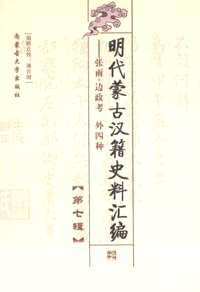 明代蒙古汉籍史料汇编
——张雨·边政考 外四种
【第七辑】
内蒙古大学出版社